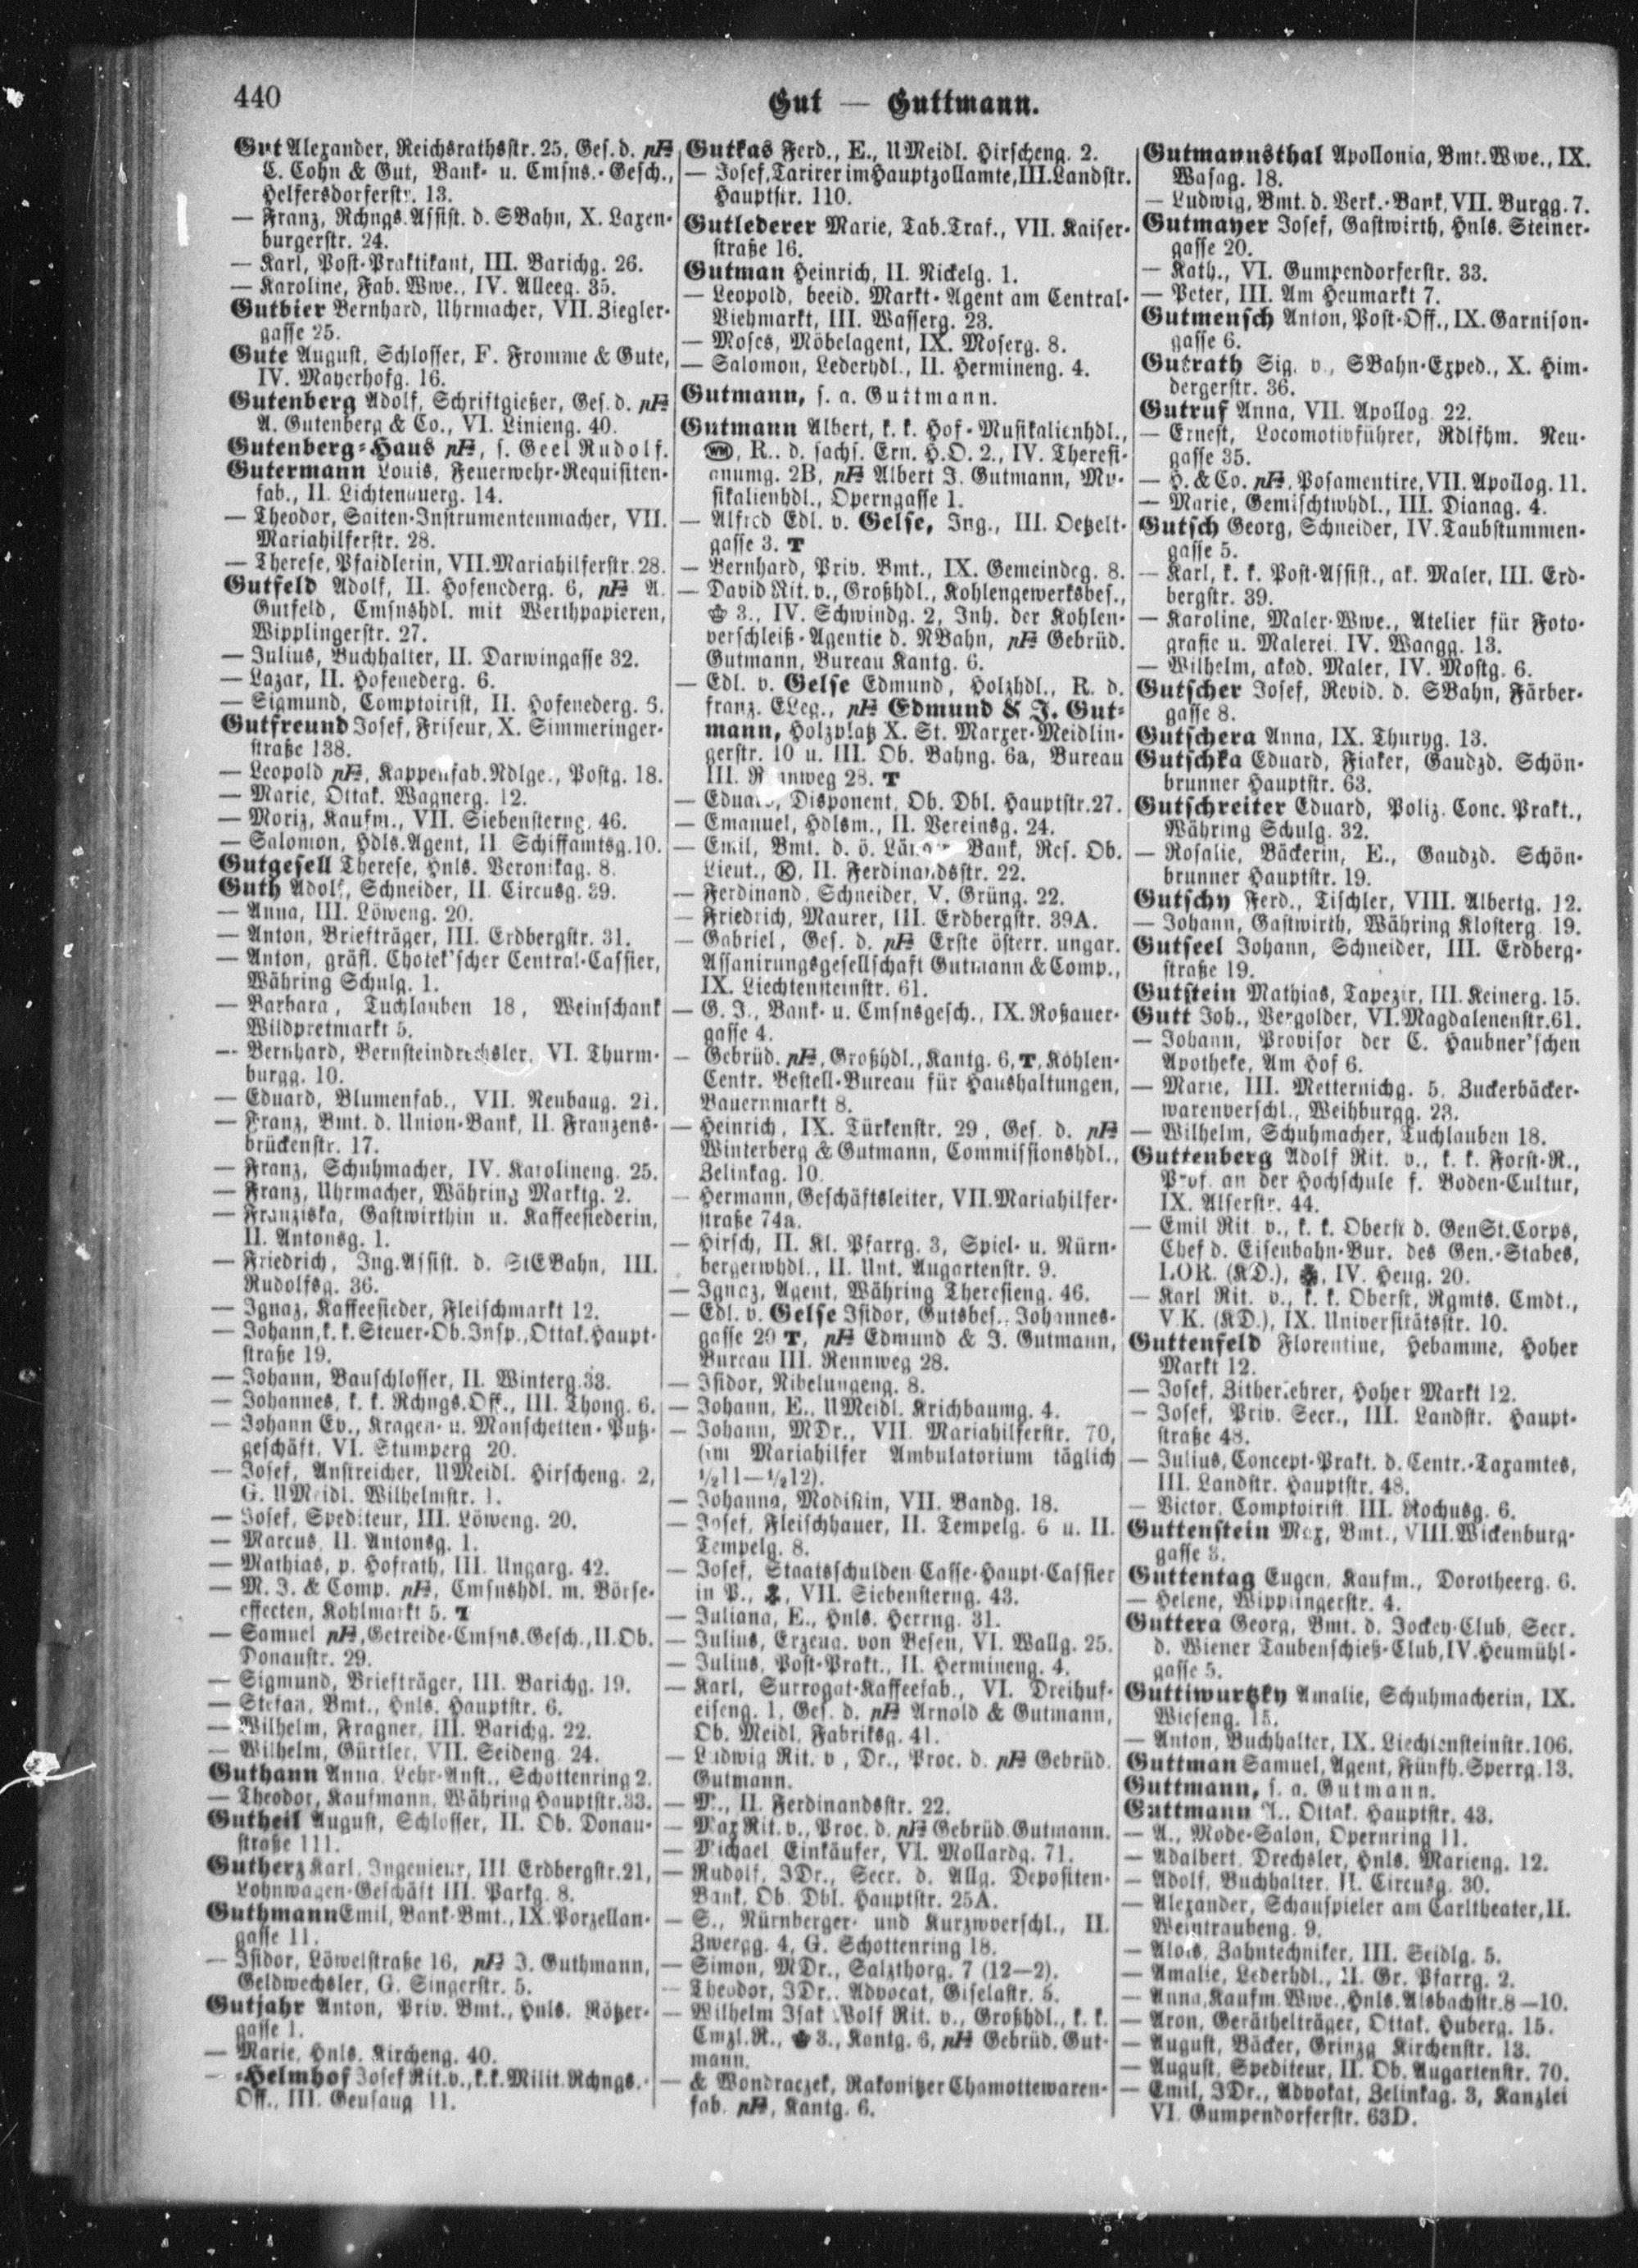 440
Gut — Guttmann.
Gut Alexander, Reichsrathsstr. 25, Ges. d. pF
C. Cohn & Gut, Bank- u. Cmsns.-Gesch.,
Helfersdorferstr. 13.
— Franz, Rchngs.Assist. d. SBahn, X. Laxen-
burgerstr. 24.
— Karl, Post-Praktikant, III. Barichg. 26.
— Karoline, Fab. Wwe., IV. Alleeg. 35.
Gutbier Bernhard, Uhrmacher, VII. Ziegler-
gasse 25.
Gute August, Schlosser, F. Fromme & Gute,
IV. Mayerhofg. 16.
Gutenberg Adolf, Schriftgießer, Ges. d. pF
A. Gutenberg & Co., VI. Linieng. 40.
Gutenberg-Haus pF, s. Geel Rudolf.
Gutermann Louis, Feuerwehr-Requisiten-
fab., II. Lichtenauerg. 14.
— Theodor, Saiten-Instrumentenmacher, VII.
Mariahilferstr. 28.
— Therese, Pfaidlerin, VII. Mariahilferstr. 28.
Gutfeld Adolf, II. Hofenederg. 6, pF A.
Gutfeld, Cmsnshdl. mit Werthpapieren,
Wipplingerstr. 27.
— Julius, Buchhalter, II. Darwingasse 32.
— Lazar, II. Hofenederg. 6.
— Sigmund, Comptoirist, II. Hofenederg. 6.
Gutfreund Josef, Friseur, X. Simmeringer-
straße 138.
— Leopold pF, Kappenfab. Ndlge., Postg. 18.
— Marie, Ottak. Wagnerg. 12.
— Moriz, Kaufm., VII. Siebensterng. 46.
— Salomon, Hdls.Agent, II Schiffamtsg. 10.
Gutgesell Therese, Hnls. Veronikag. 8.
Guth Adolf, Schneider, II. Circusg. 39.
— Anna, III. Löweng. 20.
— Anton, Briefträger, III. Erdbergstr. 31.
— Anton, gräfl. Chotek'scher Central-Cassier,
Währing Schulg. 1.
— Barbara, Tuchlauben 18, Weinschank
Wildpretmarkt 5.
— Bernhard, Bernsteindrechsler, VI. Thurm-
burgg. 10.
— Eduard, Blumenfab., VII. Neubaug. 21.
— Franz, Bmt. d. Union-Bank, II. Franzens-
brückenstr. 17.
— Franz, Schuhmacher, IV. Karolineng. 25.
— Franz, Uhrmacher, Währing Marktg. 2.
— Franziska, Gastwirthin u. Kaffeesiederin,
II. Antonsg. 1.
— Friedrich, Ing.Assist. d. StEBahn, III.
Rudolfsg. 36.
— Ignaz, Kaffeesieder, Fleischmarkt 12.
— Johann, k. k. Steuer-Ob.Insp., Ottak. Haupt-
straße 19.
— Johann, Bauschlosser, II. Winterg. 33.
— Johannes, k. k. Rchngs.Off., III. Thong. 6.
— Johann Ev., Kragen- u. Manschetten-Putz-
geschäft, VI. Stumperg 20.
— Josef, Anstreicher, UMeidl. Hirscheng. 2,
G. UMeidl. Wilhelmstr. 1.
— Josef, Spediteur, III. Löweng. 20.
— Marcus, II. Antonsg. 1.
— Mathias, p. Hofrath, III. Ungarg. 42.
— M. J. & Comp. pF, Cmsnshdl. m. Börse-
effecten, Kohlmarkt 5. T
— Samuel pF, Getreide-Cmsns.Gesch., II. Ob.
Donaustr. 29.
— Sigmund, Briefträger, III. Barichg. 19.
— Stefan, Bmt., Hnls. Hauptstr. 6.
— Wilhelm, Fragner, III. Barichg. 22.
— Wilhelm, Gürtler, VII. Seideng. 24.
Guthann Anna, Lehr-Anst., Schottenring 2.
— Theodor, Kaufmann, Währing Hauptstr. 33.
Gutheil August, Schlosser, II. Ob. Donau-
straße 111.
Gutherz Karl, Ingenieur, III Erdbergstr. 21,
Lohnwagen-Geschäft III. Parkg. 8.
Guthmann Emil, Bank-Bmt., IX. Porzellan-
gasse 11.
— Isidor, Löwelstraße 16, pF J. Guthmann,
Geldwechsler, G. Singerstr. 5.
Gutjahr Anton, Priv. Bmt., Hnls. Rötzer-
gasse 1.
— Marie, Hnls. Kircheng. 40.
— -Helmhof Josef Rit. v., k. k. Milit. Rchngs.-
Off., III. Geusaug 11.
Gutkas Ferd., E., UMeidl. Hirscheng. 2.
— Josef, Tarirer im Hauptzollamte, III. Landstr.
Hauptstr. 110.
Gutlederer Marie, Tab.Traf., VII. Kaiser-
straße 16.
Gutman Heinrich, II. Nickelg. 1.
— Leopold, beeid. Markt-Agent am Central-
Viehmarkt, III. Wasserg. 23.
— Moses, Möbelagent, IX. Moserg. 8.
— Salomon, Lederhdl., II. Hermineng. 4.
Gutmann, s. a. Guttmann.
Gutmann Albert, k. k. Hof-Musikalienhdl.,
WM, R. d. sächs. Ern. H.O. 2., IV. Theresi-
anumg. 2B, pF Albert J. Gutmann, Mu-
sikalienhdl., Operngasse 1.
— Alfred Edl. v. Gelse, Ing., III. Oetzelt-
gasse 3. T
— Bernhard, Priv. Bmt., IX. Gemeindeg. 8.
— David Rit. v., Großhdl., Kohlengewerksbes.,
3., IV. Schwindg. 2, Inh. der Kohlen-
verschleiß-Agentie d. NBahn, pF Gebrüd.
Gutmann, Bureau Kantg. 6.
— Edl. v. Gelse Edmund, Holzhdl., R. d.
franz. ELeg., pF Edmund & J. Gut-
mann, Holzplatz X. St. Marxer-Meidlin-
gerstr. 10 u. III. Ob. Bahng. 6a, Bureau
III. Rennweg 28. T
— Eduard, Disponent, Ob. Dbl. Hauptstr. 27.
— Emanuel, Hdlsm., II. Vereinsg. 24.
— Emil, Bmt. d. ö. Länder Bank, Res. Ob.
Lieut., K, II. Ferdinandsstr. 22.
— Ferdinand, Schneider, V. Grüng. 22.
— Friedrich, Maurer, III. Erdbergstr. 39A.
— Gabriel, Ges. d. pF Erste österr. ungar.
Assanirungsgesellschaft Gutmann & Comp.,
IX. Liechtensteinstr. 61.
— G. J., Bank- u. Cmsnsgesch., IX. Roßauer-
gasse 4.
— Gebrüd. pF, Großhdl., Kantg. 6, T, Kohlen-
Centr. Bestell-Bureau für Haushaltungen,
Bauernmarkt 8.
— Heinrich, IX. Türkenstr. 29, Ges. d. pF
Winterberg & Gutmann, Commissionshdl.,
Zelinkag. 10.
— Hermann, Geschäftsleiter, VII. Mariahilfer-
straße 74a.
— Hirsch, II. Kl. Pfarrg. 3, Spiel- u. Nürn-
bergerwhdl., II. Unt. Augartenstr. 9.
— Ignaz, Agent, Währing Theresieng. 46.
— Edl. v. Gelse Isidor, Gutsbes., Johannes-
gasse 20 T, pF Edmund & J. Gutmann,
Bureau III. Rennweg 28.
— Isidor, Nibelungeng. 8.
— Johann, E., UMeidl. Krichbaumg. 4.
— Johann, MDr., VII. Mariahilferstr. 70,
(im Mariahilfer Ambulatorium täglich
½11—½12).
— Johanna, Modistin, VII. Bandg. 18.
— Josef, Fleischhauer, II. Tempelg. 6 u. II.
Tempelg. 8.
— Josef, Staatsschulden-Casse-Haupt-Cassier
in P., VII. Siebensterng. 43.
— Juliana, E., Hnls. Herrng. 31.
— Julius, Erzeug. von Besen, VI. Wallg. 25.
— Julius, Post-Prakt., II. Hermineng. 4.
— Karl, Surrogat-Kaffeefab., VI. Dreihuf-
eiseng. 1, Ges. d. pF Arnold & Gutmann,
Ob. Meidl. Fabriksg. 41.
— Ludwig Rit. v., Dr., Proc. d. pF Gebrüd.
Gutmann.
— M., II. Ferdinandsstr. 22.
— Max Rit. v., Proc. d. pF Gebrüd. Gutmann.
— Michael, Einkäufer, VI. Mollardg. 71.
— Rudolf, JDr., Secr. d. Allg. Depositen-
Bank, Ob. Dbl. Hauptstr. 25A.
— S., Nürnberger- und Kurzwverschl., II.
Zwergg. 4, G. Schottenring 18.
— Simon, MDr., Salzthorg. 7 (12—2).
— Theodor, JDr., Advocat, Giselastr. 5.
— Wilhelm Isak Wolf Rit. v., Großhdl., k. k.
Cmzl.R., 3., Kantg. 6, pF Gebrüd. Gut-
mann.
— & Wondraczek, Rakonitzer Chamottewaren-
fab. pF, Kantg. 6.
Gutmannsthal Apollonia, Bmt. Wwe., IX.
Wasag. 18.
— Ludwig, Bmt. d. Verk.-Bank, VII. Burgg. 7.
Gutmayer Josef, Gastwirth, Hnls. Steiner-
gasse 20.
— Kath., VI. Gumpendorferstr. 33.
— Peter, III. Am Heumarkt 7.
Gutmensch Anton, Post-Off., IX. Garnison-
gasse 6.
Gutrath Sig. v., SBahn-Exped., X. Him-
bergerstr. 36.
Gutruf Anna, VII. Apollog. 22.
— Ernest, Locomotivführer, Rdlfhm. Neu-
gasse 35.
— H. & Co. pF, Posamentire, VII. Apollog. 11.
— Marie, Gemischtwhdl., III. Dianag. 4.
Gutsch Georg, Schneider, IV. Taubstummen-
gasse 5.
— Karl, k. k. Post-Assist., ak. Maler, III. Erd-
bergstr. 39.
— Karoline, Maler-Wwe., Atelier für Foto-
grafie u. Malerei, IV. Waagg. 13.
— Wilhelm, akad. Maler, IV. Mostg. 6.
Gutscher Josef, Revid. d. SBahn, Färber-
gasse 8.
Gutschera Anna, IX. Thuryg. 13.
Gutschka Eduard, Fiaker, Gaudzd. Schön-
brunner Hauptstr. 63.
Gutschreiter Eduard, Poliz. Conc. Prakt.,
Währing Schulg. 32.
— Rosalie, Bäckerin, E., Gaudzd. Schön-
brunner Hauptstr. 19.
Gutschy Ferd., Tischler, VIII. Albertg. 12.
— Johann, Gastwirth, Währing Klosterg. 19.
Gutseel Johann, Schneider, III. Erdberg-
straße 19.
Gutstein Mathias, Tapezir, III. Keinerg. 15.
Gutt Joh., Vergolder, VI. Magdalenenstr. 61.
— Johann, Provisor der C. Haubner'schen
Apotheke, Am Hof 6.
— Marie, III. Metternichg. 5, Zuckerbäcker-
warenverschl., Weihburgg. 23.
— Wilhelm, Schuhmacher, Tuchlauben 18.
Guttenberg Adolf Rit. v., k. k. Forst-R.,
Prof. an der Hochschule f. Boden-Cultur,
IX. Alserstr. 44.
— Emil Rit. v., k. k. Oberst d. GenSt.Corps,
Chef d. Eisenbahn-Bur. des Gen.-Stabes,
LOR. (KD.), IV. Heug. 20.
— Karl Rit. v., k. k. Oberst, Rgmts. Cmdt.,
V.K. (KD.), IX. Universitätsstr. 10.
Guttenfeld Florentine, Hebamme, Hoher
Markt 12.
— Josef, Zitherlehrer, Hoher Markt 12.
— Josef, Priv. Secr., III. Landstr. Haupt-
straße 48.
— Julius, Concept-Prakt. d. Centr.-Taxamtes,
III. Landstr. Hauptstr. 48.
— Victor, Comptoirist, III. Rochusg. 6.
Guttenstein Max, Bmt., VIII. Wickenburg-
gasse 3.
Guttentag Eugen, Kaufm., Dorotheerg. 6.
— Helene, Wipplingerstr. 4.
Guttera Georg, Bmt. d. Jockey-Club, Secr.
d. Wiener Taubenschieß-Club, IV. Heumühl-
gasse 5.
Guttiwurtzky Amalie, Schuhmacherin, IX.
Wieseng. 15.
— Anton, Buchhalter, IX. Liechtensteinstr. 106.
Guttman Samuel, Agent, Fünfh. Sperrg. 13.
Guttmann, s. a. Gutmann.
Guttmann A., Ottak. Hauptstr. 43.
— A., Mode-Salon, Opernring 11.
— Adalbert, Drechsler, Hnls. Marieng. 12.
— Adolf, Buchhalter, II. Circusg. 30.
— Alexander, Schauspieler am Carltheater, II.
Weintraubeng. 9.
— Alois, Zahntechniker, III. Seidlg. 5.
— Amalie, Lederhdl., II. Gr. Pfarrg. 2.
— Anna, Kaufm. Wwe., Hnls. Alsbachstr. 8—10.
— Aron, Geräthelträger, Ottak. Huberg. 15.
— August, Bäcker, Grinzg Kirchenstr. 13.
— August, Spediteur, II. Ob. Augartenstr. 70.
— Emil, JDr., Advokat, Zelinkag. 3, Kanzlei
VI. Gumpendorferstr. 63D.